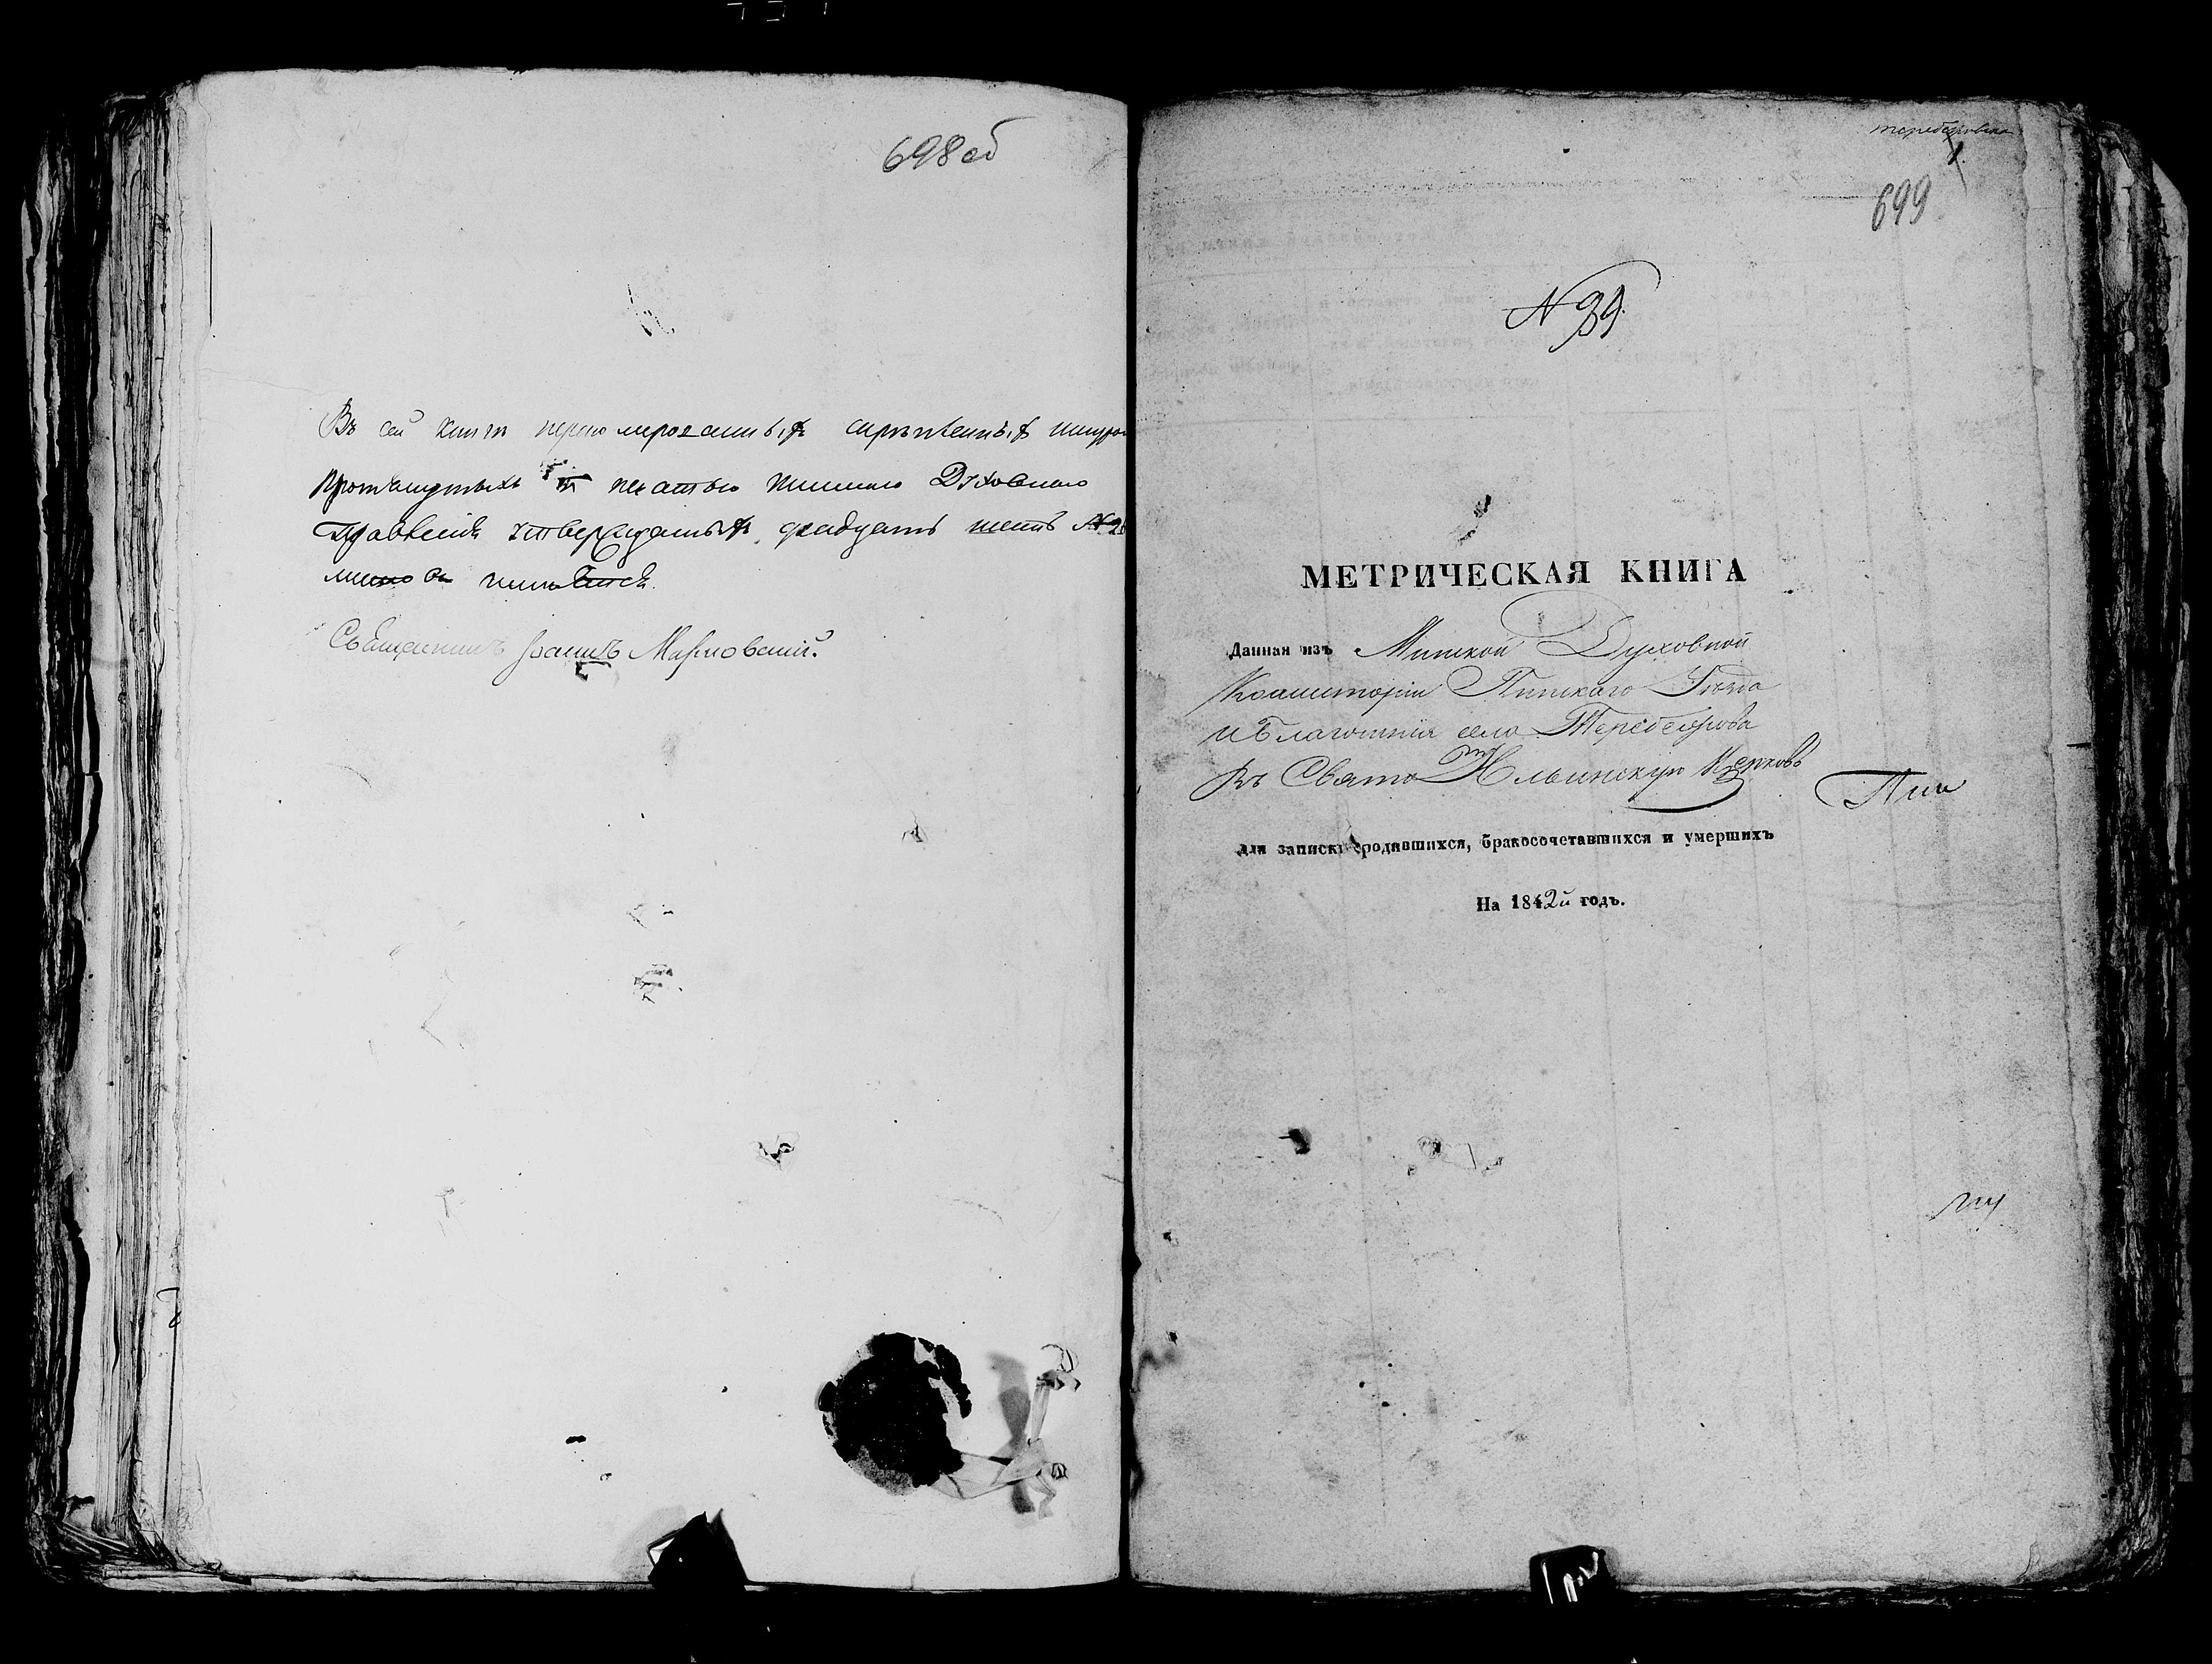 698 об
Въ сей книги перенумерованныхъ скрепленныхъ шнуром
протянутыхъ и печатью Духовнаго
Правления утвержденныхъ двадцать шесть № 26
листовъ имеется
Священникъ Иоаннъ
1.
699
N 39.
МЕТРИЧЕСКАЯ КНИГА
Данная изъ Минской Духовной
Консисторіи Пинскаго Уезда
и Благочинія села Теребежова
Въ Свято Ильинскую Церковь
для записки родившихся, бракосочетавшихся и умершихъ
На 1842й годъ.